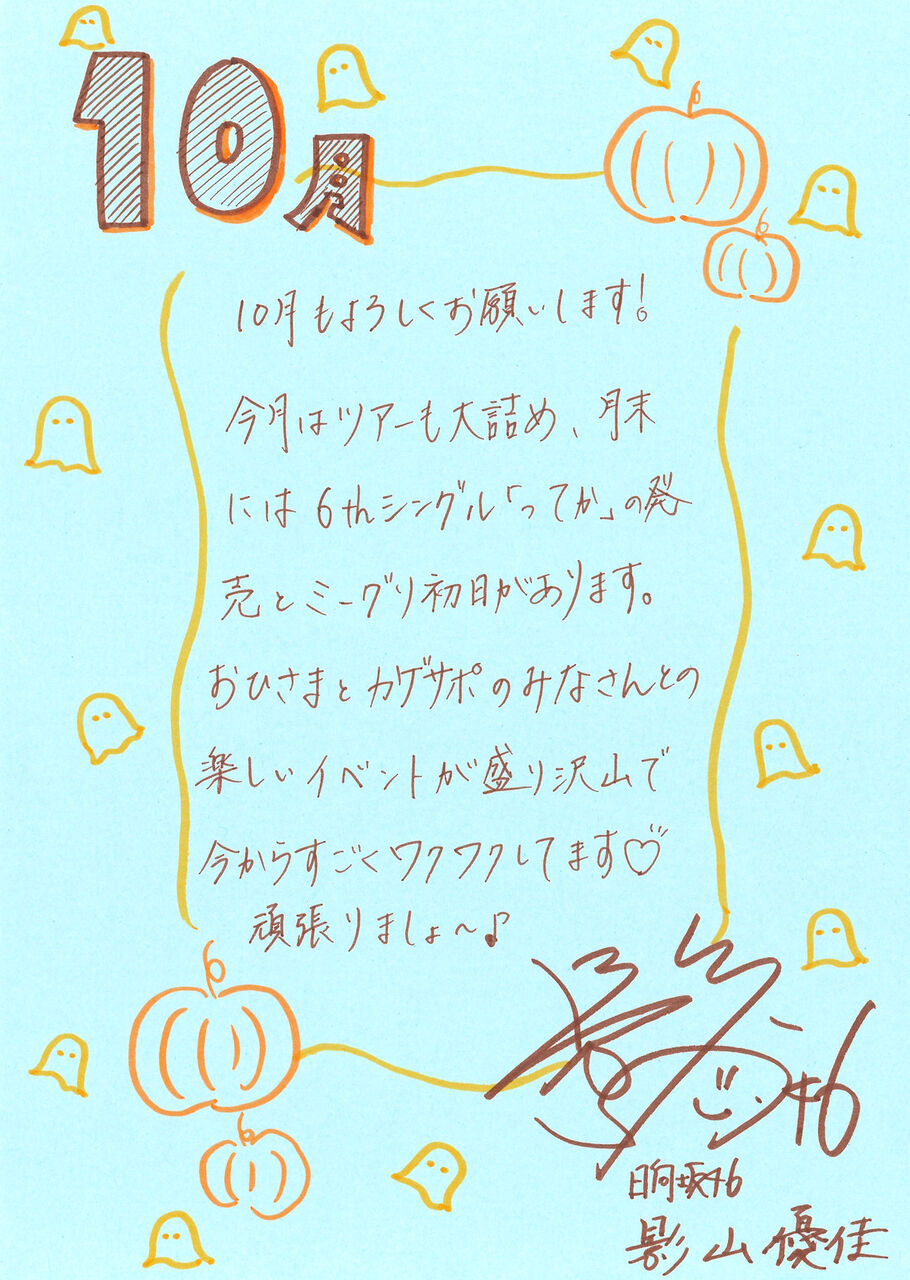 10月
10月もよろしくお願いします!
今月はツアーも大詰め、月末
には6thシングル「ってか」の発
売とミーグリ初日があります。
おひさまとカゲサポのみなさんとの
楽しいイベントが盛り沢山で
今からすごくワクワクしてます♡
頑張りましょ〜♪
日向坂46
影山優佳